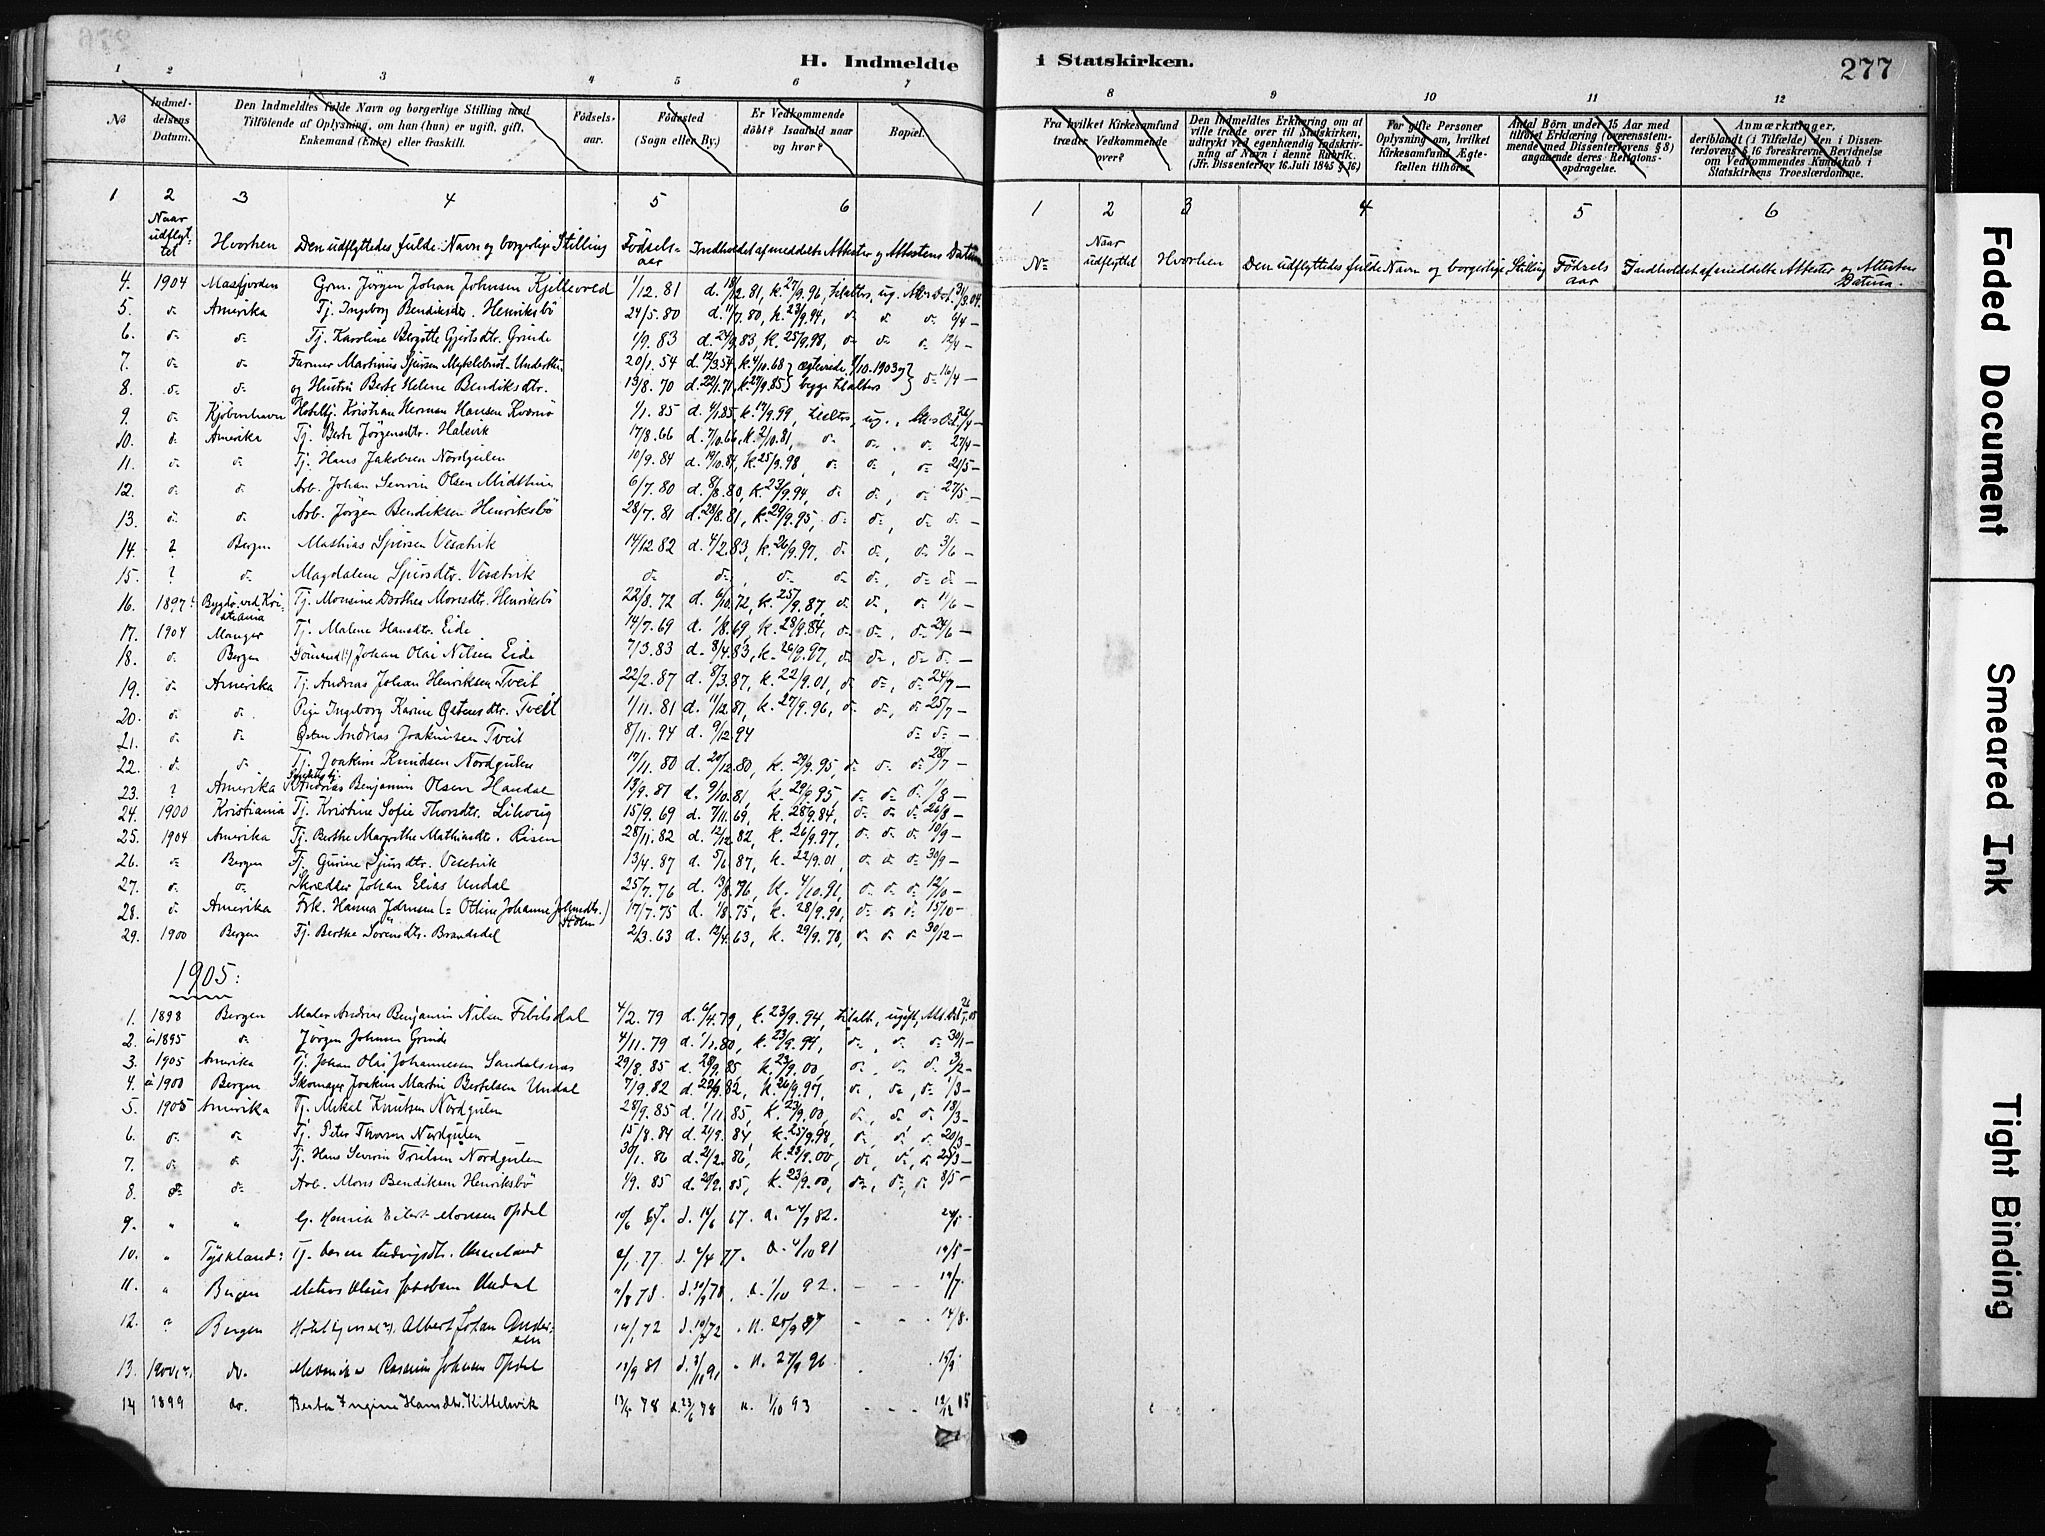 H. Indmeldte i Statskirken.
277
1 2 3 4 5 6 7
8 9 10 11 12
No
Indmel-
delsens
Datum.
Den Indmeldtes fulde Navn og borgerlige Stilling med
Tilföiende af Oplysning, om han (hun) er ugift, gift,
Enkemand (Enke) eller fraskilt.
Födsels-
aar.
Födested
(Sogn eller By.)
Er Vedkommende
döbt? Isaafald naar
og hvor?
Bopæl.
Fra hvilket Kirkesamfund
træder Vedkommende
over?
Den Indmeldtes Erklæring om at
ville træde over til Statskirken,
udtrykt ved egenhændig Indskriv-
ning af Navn i denne Rubrik.
(Jfr. Dissenterlov 16. Juli 1845 § 16)
For gifte Personer
Oplysning om, hvilket
Kirkesamfund Ægte-
fællen tilhörer.
Antal Börn under 15 Aar med
tilföiet Erklæring (overensstem-
mende med Dissenterlovens § 8)
angaaende deres Religions-
opdragelse.
Anmærkninger,
deriblandt (i Tilfælde) den i Dissen-
terlovens § 16 foreskrevne Bevidnelse
om Vedkommendes Kundskab i
Statskirkens Troeslærdomme.
1 2 3 4 5 6
Naar udflyt-tet Hvorhen Den udflyttedes fulde Navn og borgerlige Stilling Födsels-aar Indholdet af meddelte Attester og Attestens Datum
1 2 3 4 5 6
No Naar udflyttet Hvorhen Den udflyttedes fulde Navn og borgerlige Stilling Födsels aar Indholdet af meddelte Attester og Attestens Datum.
4. 1904 Masfjorden Grm. Jörgen Johan Johnsen Kjellevold 1/12. 81 d. 18/12. 81, k. 27/9. 96, tilalters, ug. 31/3. 04
5. d= Amerika Tj. Ingeborg Bendiksdtr. Henriksbö 24/5. 80 d. 11/7. 80, k. 23/9. 94, d= d= d= 6/4 –
6. d= d= Tj. Karoline Bergitte Gjertsdtr. Grinde 1/9. 83 d. 24/9. 83, k. 25/9. 98, d= d= d= 12/4 –
7. d= d= Farmer Martinus Sjursen Myklebust 20/1. 54 d. 12/3. 54, k. 4/10. 68
8. d= d= og Hustru Berte Helene Bendiksdtr. 13/8. 70 d. 22/1. 71, k. 27/9. 85 begge tilalters d= 16/4 –
9. d= Kjöbenhavn Kristian Herman Hansen Kvernö 1/1. 85 k. 17/9. 99, ug.
10. d= Amerika Tj. Berte Jörgensdtr. Halsvik 17/8. 66 d. 7/10. 66, k. 2/10. 81, d= d= d= 27/4 –
11. d= d= Tj. Hans Jakobsen Nordgulen 10/9. 84 d. 19/10. 84, k. 25/9. 98, d= d= d= 21/5 –
12. d= d= Arb. Johan Severin Olsen Midttun 6/7. 80 d. 8/8. 80, k. 23/9. 94, d= d= d= 27/5 –
13. d= d= Arb. Jörgen Bendiksen Henriksbö 28/7. 81 d. 28/8. 81, k. 29/9. 95, d= d= d= d= –
14. ? Bergen Mathias Sjursen Vesetvik 14/12. 82 d. 4/2. 83, k. 26/9. 97, d= d= d= 3/6 –
15. ? d= Magdalene Sjursdtr. Vesetvik d= d= d= d= d= d= d= –
16. 1897 Bygdö ved Kristiania Tj. Monsine Dorthea Monsdtr. Henriksbö 22/8. 72 d. 6/10. 72, k. 25/9. 87, d= d= d= 11/6 –
17. 1904 Manger Tj. Malene Hansdtr. Eide 14/7. 69 d. 1/8. 69, k. 28/9. 84, d= d= d= 24/6 –
18. d= Bergen Johan Olai Nilsen Eide 7/3. 83 d. 8/4. 83, k. 26/9. 97, d= d= d= d= –
19. d= Amerika Tj. Andreas Johan Henriksen Tveit 22/2. 87 d. 8/3. 87, k. 22/9. 01, d= d= d= 24/7 –
20. d= d= Pige Ingeborg Karine Östensdtr. Tveit 1/11. 81 d. 11/12. 81, k. 27/9. 96, d= d= d= 25/7 –
21. d= d= Östen Andreas Joakimsen Tveit 8/11. 94 d. 9/12. 94 d= d= –
22. d= d= Tj. Joakim Knudsen Nordgulen 17/11. 80 d. 20/12. 80, k. 29/9. 95, d= d= d= 28/7 –
23. ? Amerika Andreas Benjamin Olsen Handal 18/9. 81 d. 9/10. 81, k. 29/9. 95, d= d= d= 1/8 –
24. 1900 Kristiania Tj. Kristine Sofie Thorsdtr. Lihoug 15/9. 69 d. 7/11. 69, k. 28/9. 84, d= d= d= 26/8 –
25. 1904 Amerika Tj. Berthe Margrethe Mathiasdtr. Risen 28/11. 82 d. 12/12. 82, k. 26/9. 97, d= d= d= 10/9 –
26. d= Bergen Tj. Gurine Sjursdtr. Vesetvik 13/4. 87 d. 5/6. 87, k. 22/9. 01, d= d= d= 30/9 –
27. d= d= Skrædder Johan Elias Undal 25/7. 76 d. 13/8. 76, k. 4/10. 91, d= d= d= 12/10 –
28. d= Amerika Frk. Hanna Johnsen (= Ottine Johanne Johnsdtr. Holm) 17/7. 75 d. 1/8. 75, k. 28/9. 90, d= d= d= 15/10 –
29. 1900 Bergen Tj. Berthe Sörensdtr. Brandsdal 2/3. 63 d. 12/4. 63, k. 29/9. 78, d= d= d= 30/12 –
1905:
1. 1898 Bergen Maler Andreas Benjamin Nilsen Fibilsdal 4/2. 79 d. 6/4. 79, k. 23/9. 94, tilalt., ugift,
2. 1895 d= Jörgen Johnsen Grinde 4/11. 79 d. 1/1. 80, k. 23/9. 94, d= d= d= 30/1 –
3. 1905 Amerika Tj. Johan Olai Johannesen Sandalsnæs 29/8. 85 d. 28/9. 85, k. 23/9. 00, d= d= d= 3/2 –
4. 1900 Bergen Skomager Joakim Martin Bertelsen Undal 7/9. 82 d. 22/9. 82, k. 26/9. 97, d= d= d= 1/3 –
5. 1905 Amerika Tj. Mikal Knutsen Nordgulen 28/9. 85 d. 1/11. 85, k. 23/9. 00, d= d= d= 18/3 –
6. d= d= Tj. Peter Thorsen Nordgulen 15/8. 84 d. 21/9. 84, k. 25/9. 98, d= d= d= 20/3 –
7. d= d= Tj. Hans Severin Nordgulen 30/1. 86 d. 21/2. 86, k. 23/9. 00, d= d= d= 25/3 –
8. d= d= Arb. Mons Bendiksen Henriksbö 1/9. 85 k. 23/9. 00, d= d= d= 3/5 –
9. " " Henrik Monsen Opdal 10/6 67 d. 16/6 67. 24/9 82.
10. " Tyskland: 77 d. 2/4 77. 4/10 91 19/5 –
11. " Bergen Matros Jakobsen Undal 78 1/10 92. – – – 19/7.
12. " Bergen Albert Johan Andersen 14/1 72 25/9 87 – – 14/8.
13. 1900 do. Johnsen Opdal 18/9 81 27/9 96 15/9
14 1899 do. Hansdtr. Kittelsvik 78 d. 23/6 78 1/10 93 – – – 12/12 05
Faded Document
Smeared Ink
Tight Binding